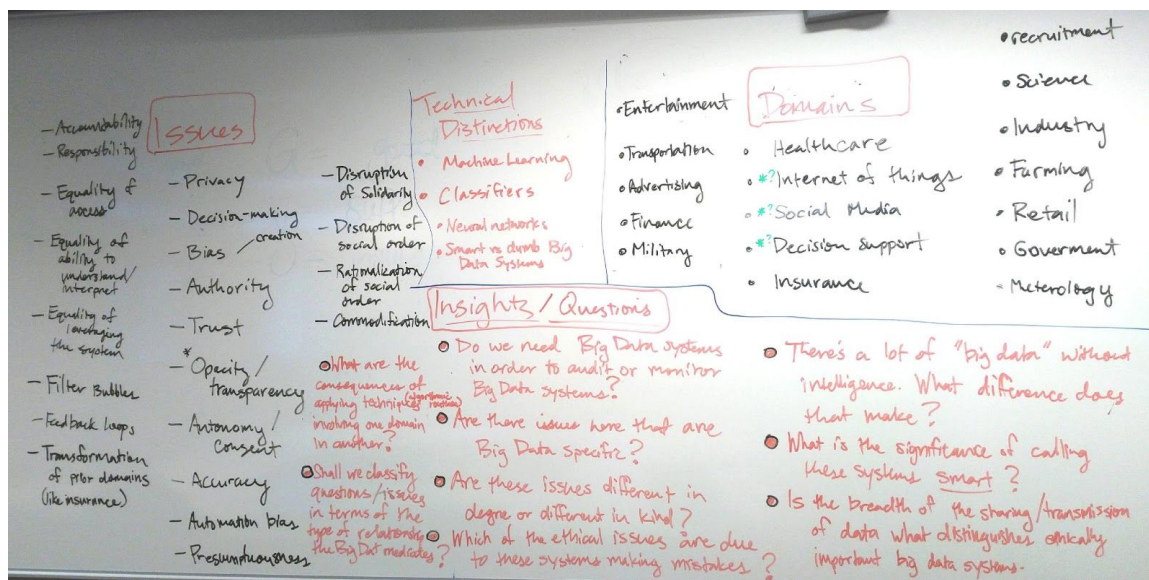 Issues
— Accountability
— Responsibility
— Equality of
access
— Equality of
ability to
understand/
interpret
— Equality of
leveraging
the system
— Filter Bubbles
— Feedback loops
— Transformation
of prior domains
(like insurance)
— Privacy
— Decision-making
/creation
— Bias
— Authority
— Trust
* — Opacity/
transparency
— Autonomy/
Consent
— Accuracy
— Automation bias
— Presumptuousness
— Disruption
of Solidarity
— Disruption of
social order
— Rationalization
of social
order
— Commodification
Technical
Distinctions
• Machine Learning
• Classifiers
• Neural networks
• Smart vs dumb Big
Data Systems
Domains
• Entertainment
• Transportation
• Advertising
• Finance
• Military
• Healthcare
• *? Internet of things
• *? Social Media
• *? Decision Support
• Insurance
• recruitment
• Science
• Industry
• Farming
• Retail
• Goverment
• Meterology
Insights/Questions
• What are the
consequences of
applying techniques (algorithmic routines)
involving one domain
in another?
• Shall we classify
questions/issues
in terms of the
type of relationship
the Big Dat mediates?
• Do we need Big Data systems
in order to audit or monitor
Big Data systems?
• Are there issues here that are
Big Data specific?
• Are these issues different in
degree or different in kind?
• Which of the ethical issues are due
to these systems making mistakes?
• There's a lot of "big data" without
intelligence. What difference does
that make?
• What is the significance of calling
these systems smart?
• Is the breadth of the sharing/transmission
of data what distinguishes ethically
important big data systems.